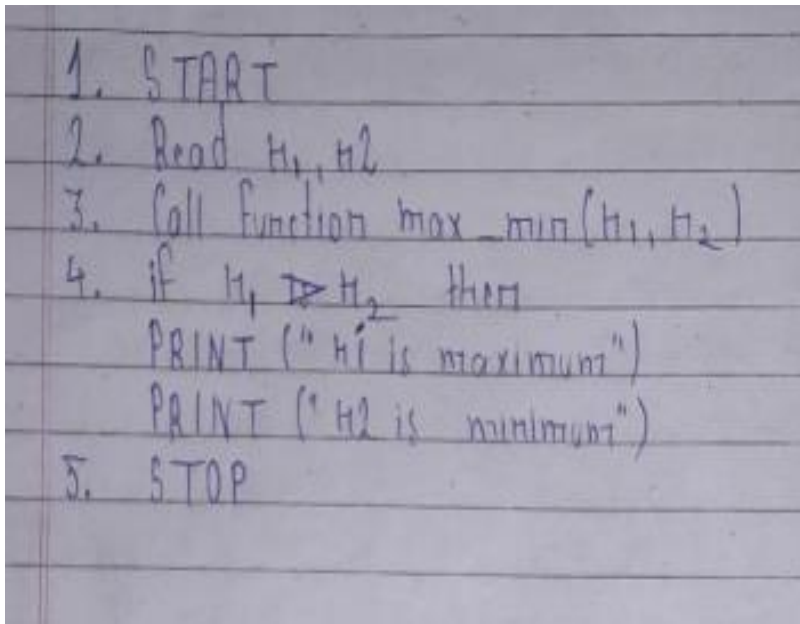 1. START
2. Read n1, n2
3. Call function max_min(n1, n2)
4. if n1 > n2 then
PRINT ("n1 is maximum")
PRINT ("n2 is minimum")
5. STOP